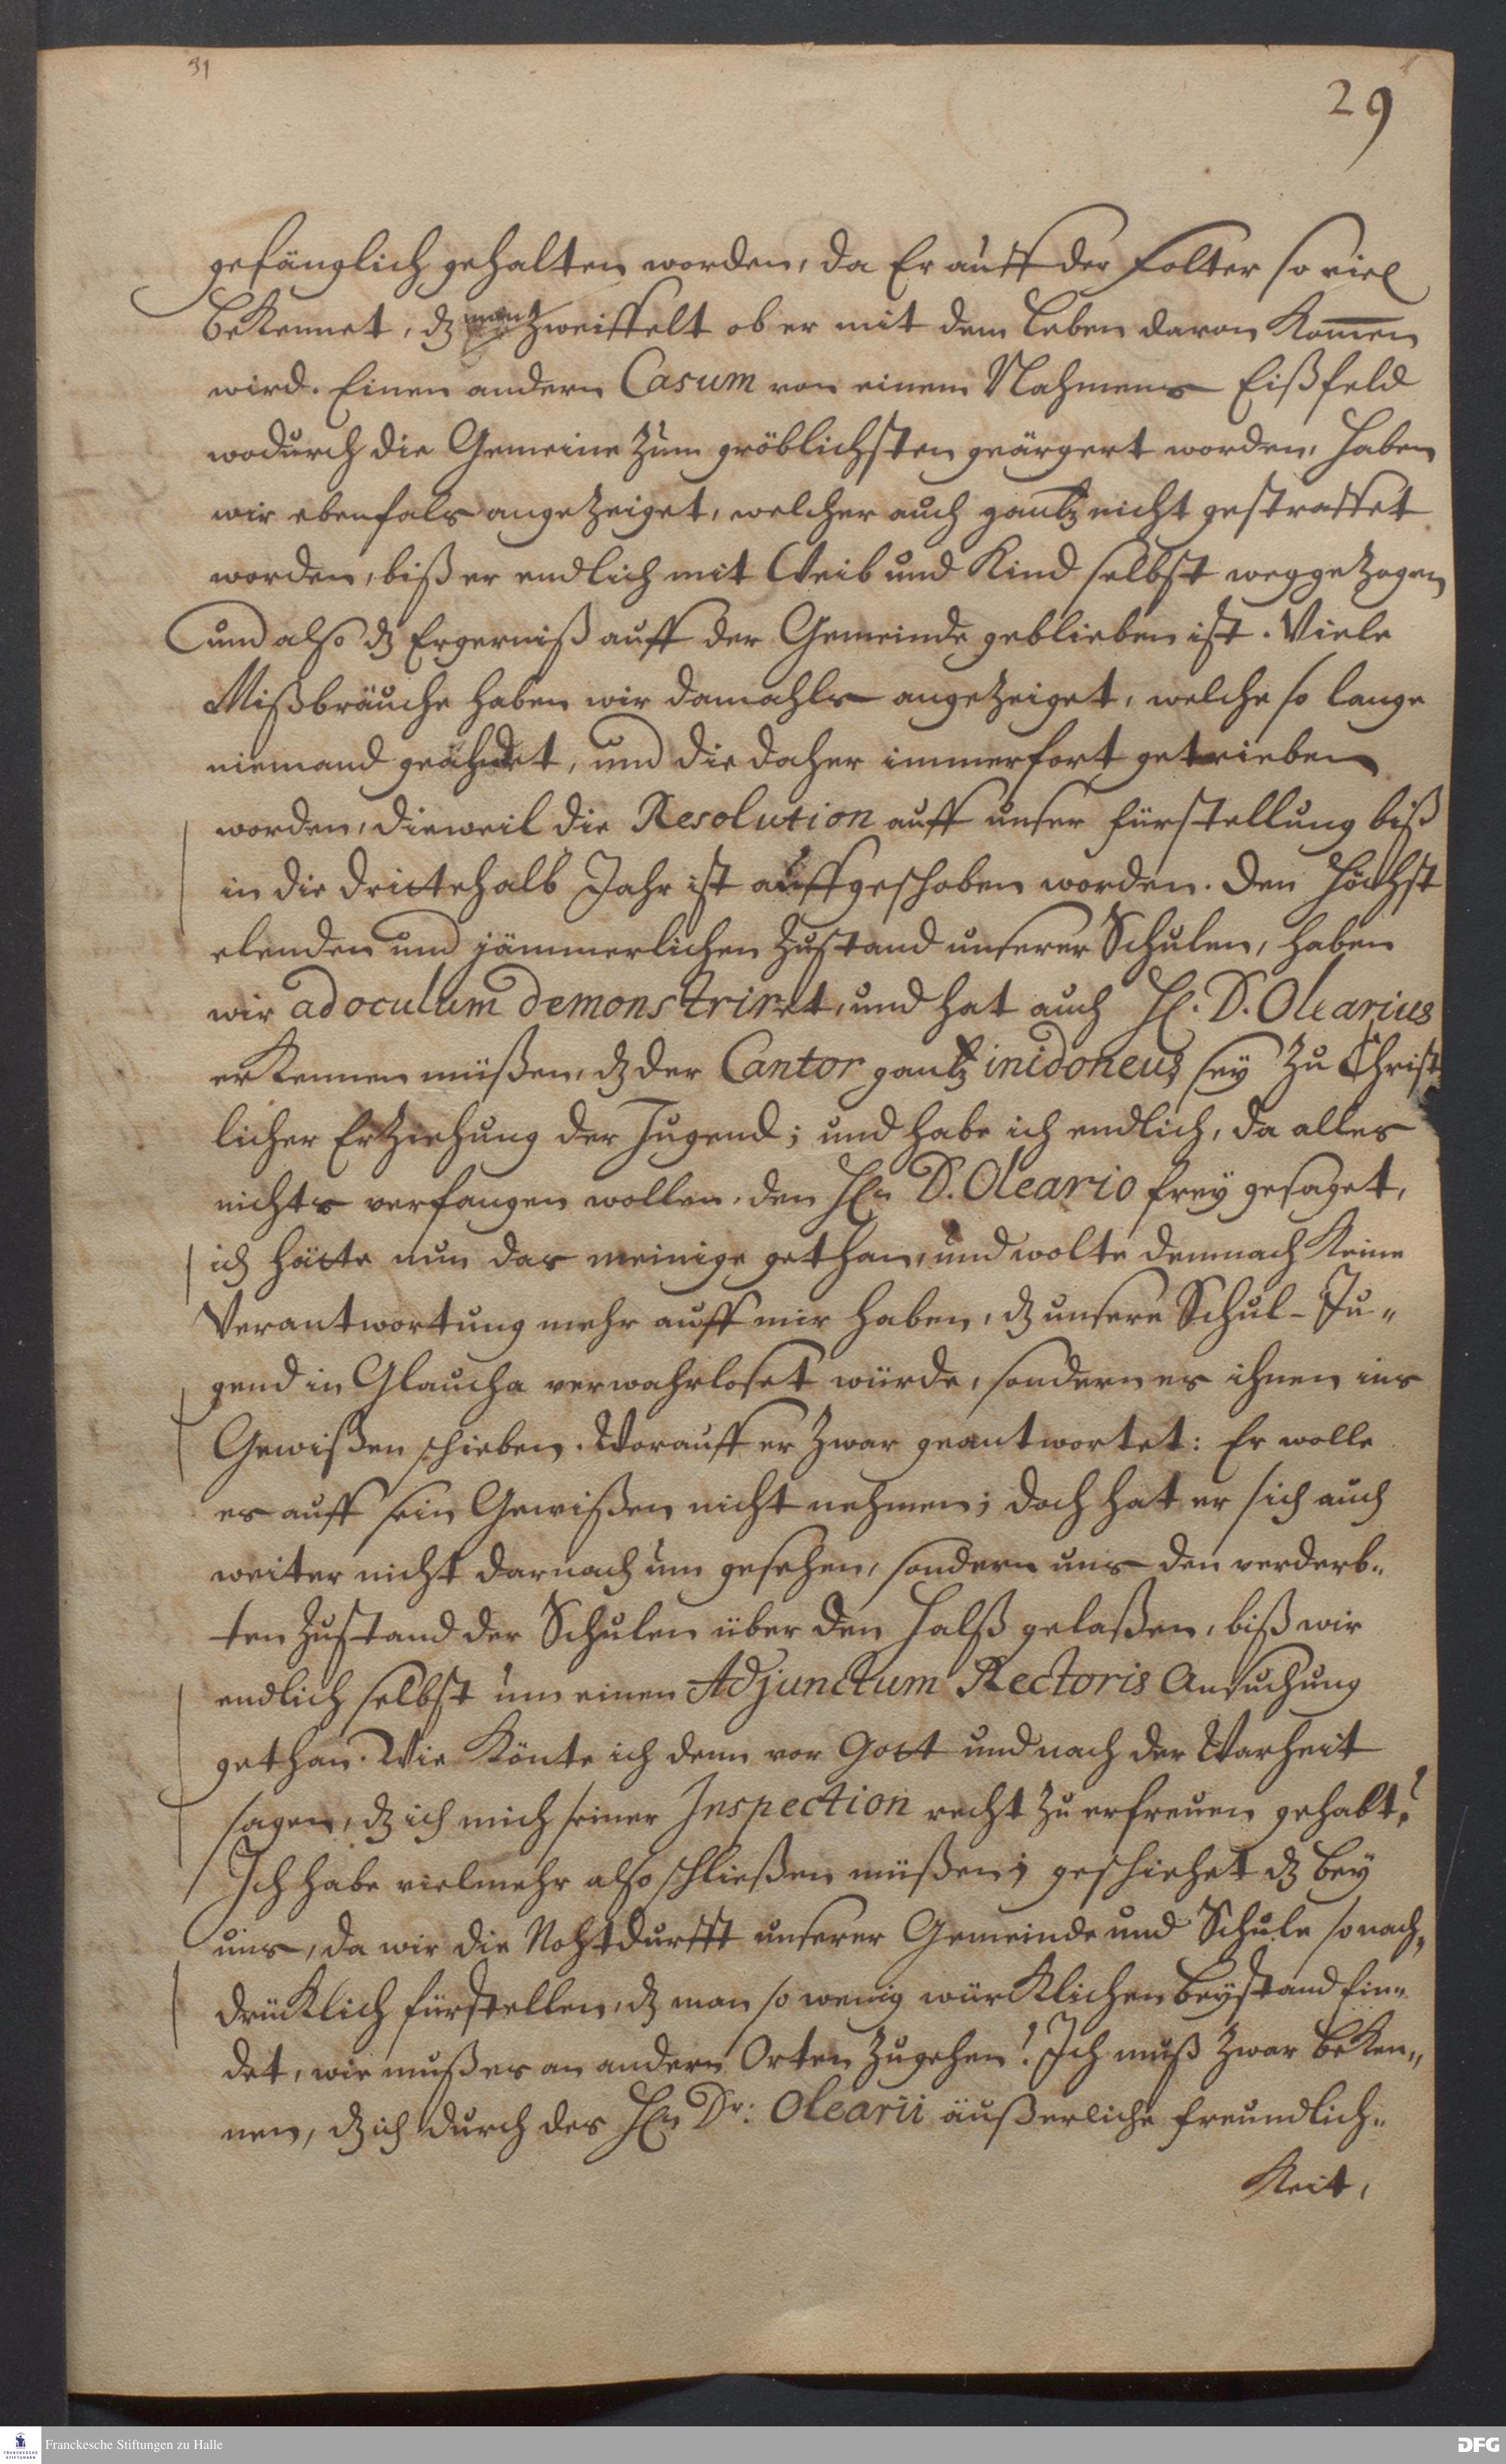 31
29
gefänglich gehalten worden, da Er auff der Folter so viel
bekennet, dz man zweiffelt ob er mit dem Leben davon kom̅en
wird. Einen andern Casum von einem Nahmens Eißfeld
wodurch die Gemeine zum gröblichsten geärgert worden, haben
wir ebenfals angezeiget, welcher auch gantz nicht gestraffet
worden, biß er endlich mit Weib und Kind selbst weggezogen
und also dz Ergerniß auff der Gemeinde geblieben ist. Viele
Mißbräuche haben wir damahls angezeiget, welche so lange
niemand geahndet, und die daher immerfort getrieben
worden, dieweil die Resolution auff unser fürstellung biß
in die drittehalb Jahr ist auffgeschoben worden. Den höchst
elenden und jämmerlichen Zustand unserer Schulen, haben
wir ad oculum demonstriret, und hat auch H. D. Olearius
erkennen müßen, dz der Cantor gantz inidoneus sey zu Christ
licher Erziehung der Jugend; und habe ich endlich, da alles
nichts verfangen wollen, den Hn D. Oleario frey gesaget,
ich hätte nun das meinige gethan, und wolte demnach keine
Verantwortung mehr auff mir haben, dz unsere Schul-Ju-
gend in Glaucha verwahrloset würde, sondern es ihnen ins
Gewißen schieben. Worauff er zwar geantwortet: Er wolle
es auff sein Gewißen nicht nehmen; doch hat er sich auch
weiter nicht darnach um gesehen, sondern uns den verderb-
ten Zustand der Schulen über den Halß gelaßen, biß wir
endlich selbst um einen Adjunctum Rectoris Ansuchung
gethan. Wie könte ich denn vor Gott und nach der Warheit
sagen, dz ich mich seiner Inspection recht zu erfreuen gehabt?
Ich habe vielmehr also schließen müßen; geschiehet dz bey
uns, da wir die Nohtdurfft unserer Gemeinde und Schule so nach-
drücklich fürstellen, dz man so wenig würcklichen beystand fin-
det, wie muß es an andern Orten zugehen! Ich muß zwar beken-
nen, dz ich durch des Hn Dr: Olearii äußerliche freundlich-
keit,
Franckesche Stiftungen zu Halle
FRANCKESCHE STIFTUNGEN
DFG